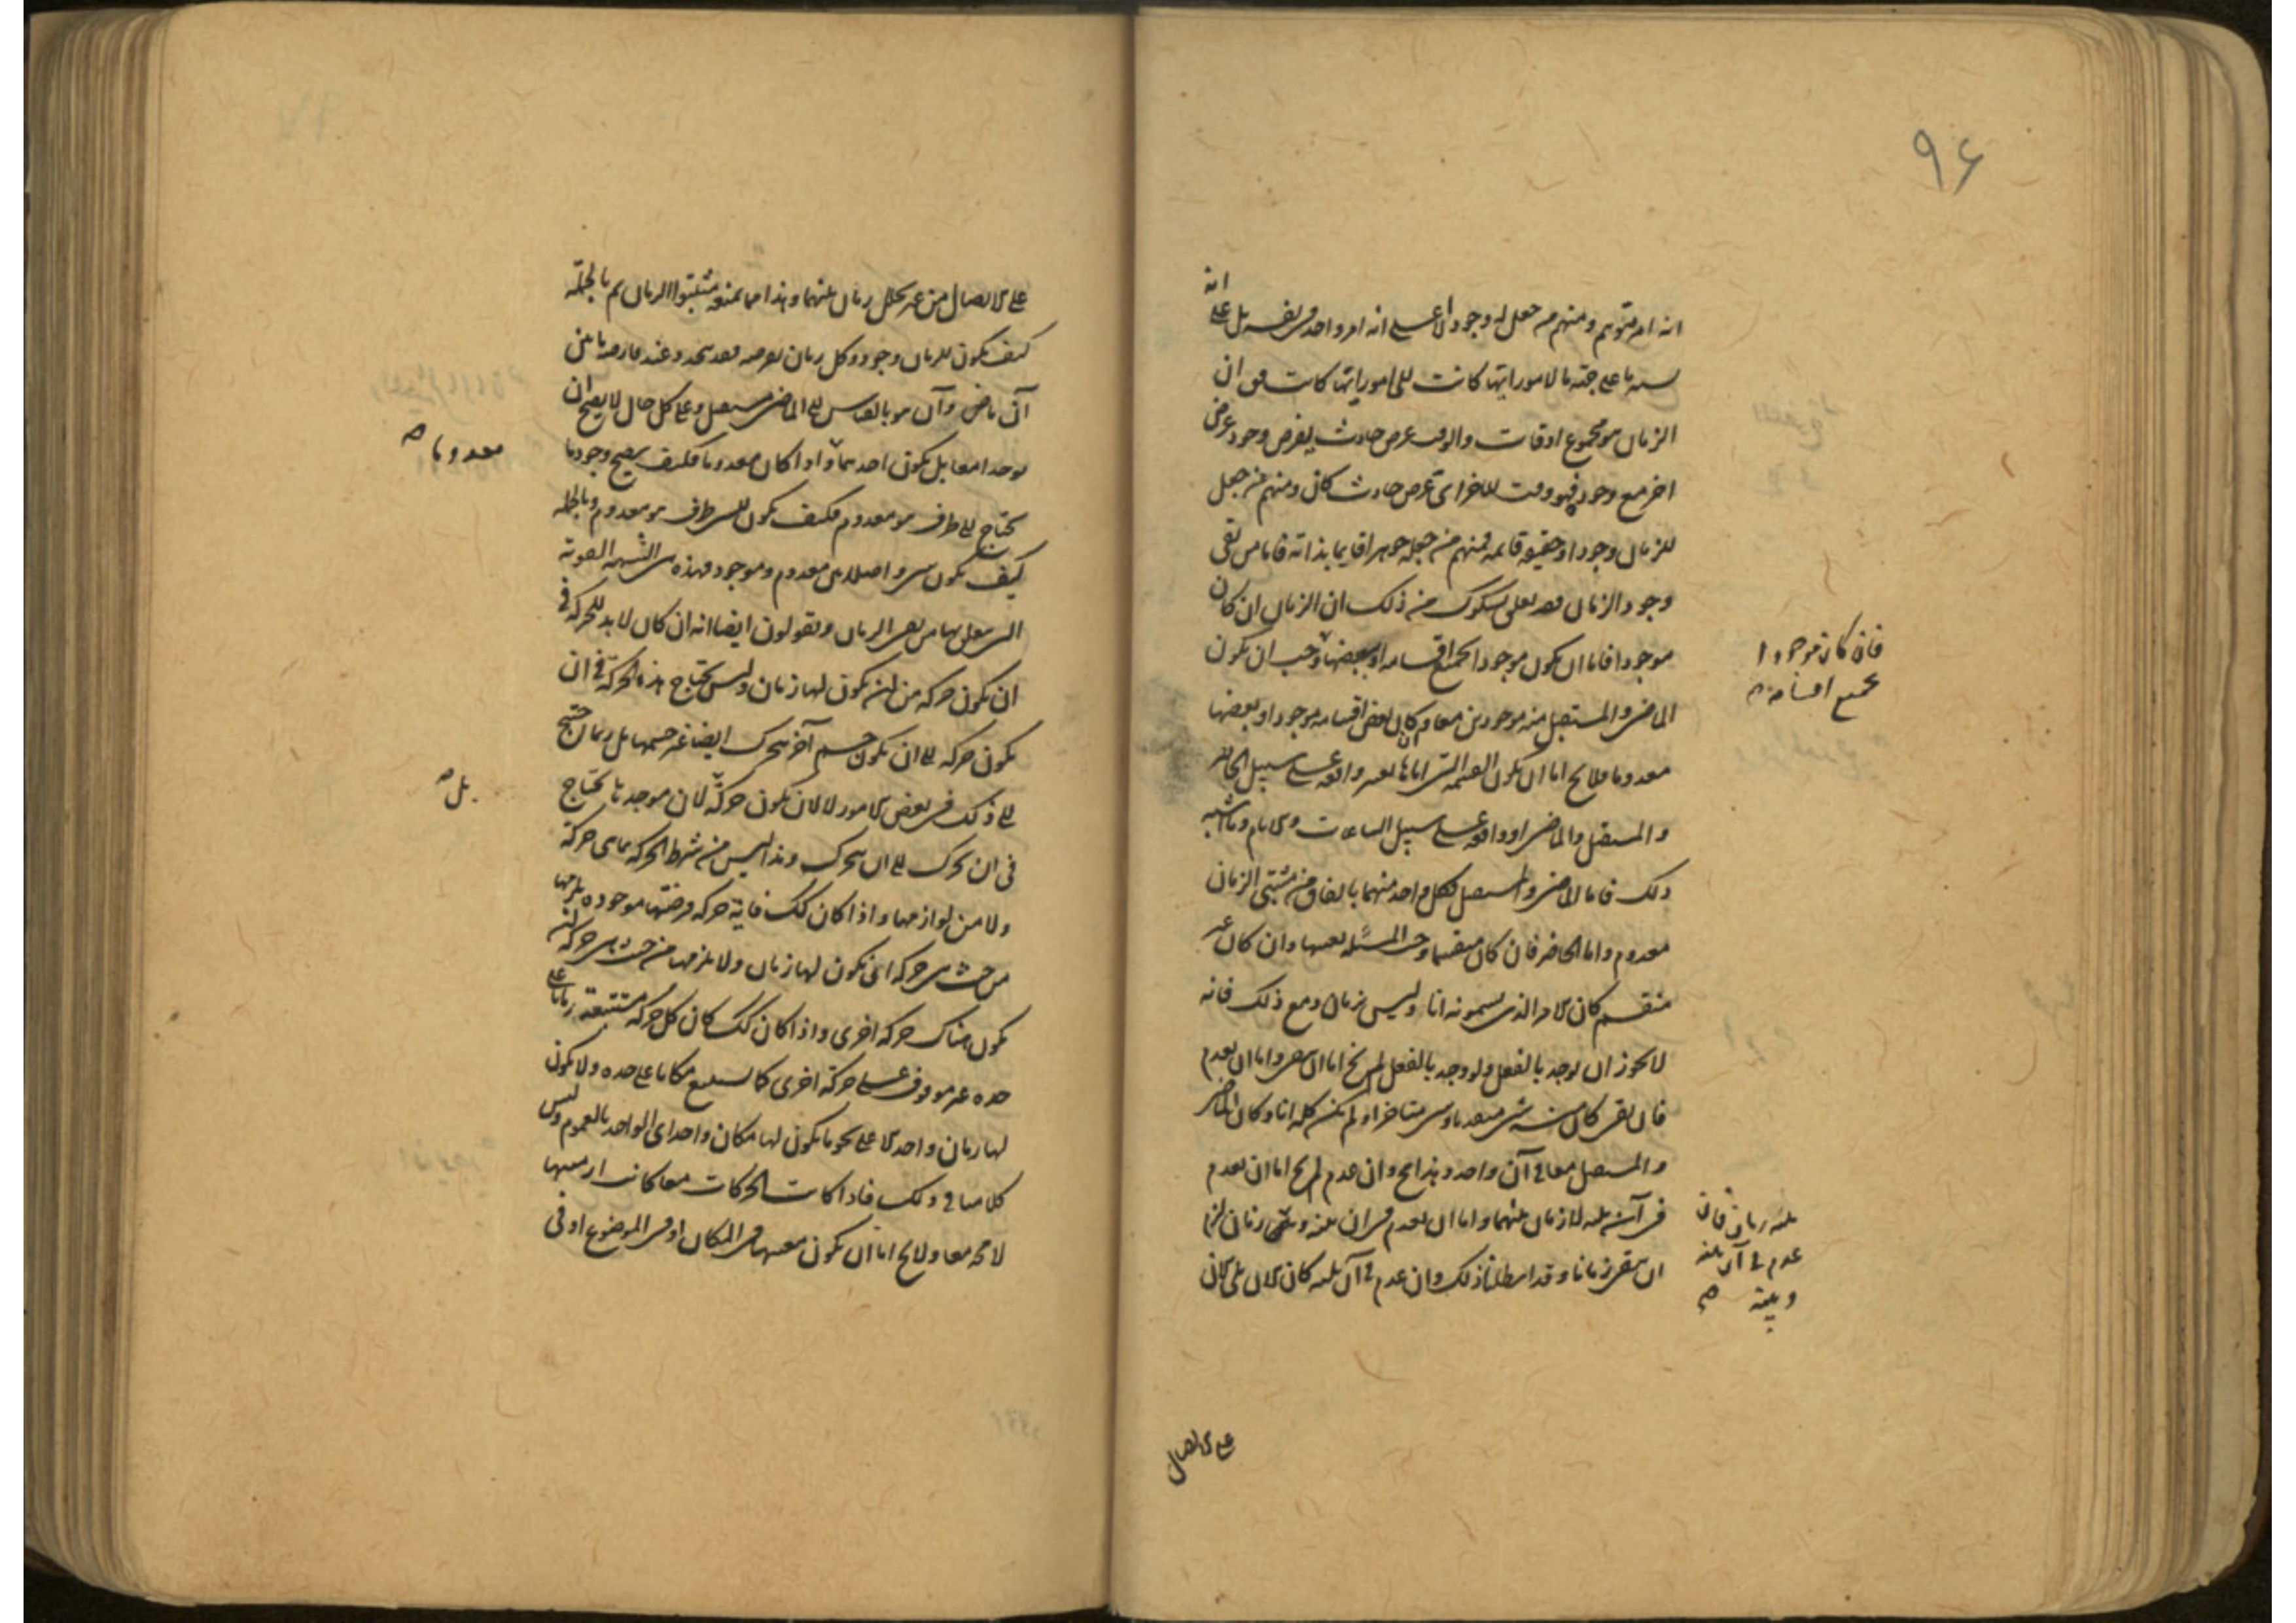 ٩۶
انه
انه امر متوهم ومنهم من جعل له وجودا لا على انه امر واحد فى نفسه بل على
نسبة ما على جهة ما لامور ايتها كانت الى امور ايتها كانت فق ان
الزمان هو مجموع اوقات والوقت عرض حادث يفرض وجود عرض
اخر مع وجوده فهو وقت للاخر اى عرض حادث كان ومنهم من جعل
للزمان وجودا وحقيقة قائمة فمنهم من جعله جوهرا قايما بذاته فاما من نفى
وجود الزمان فقد تعلق بشكوك من ذلك ان الزمان ان كان
موجودا فاما ان يكون موجودا بجميع اقسامه او ببعضها وجب ان يكون
فان كان موجودا
بجميع اقسامه
الماضى والمستقبل منه موجودين معا وان كان بعض اقسامه موجودا وبعضها
معدوما فلا يخ اما ان يكون القسمة التى اياها نعتبر واقعة على سبيل الحاضر
والمستقبل والماضى او واقعة على سبيل الساعات والايام وما اشبه
ذلك فاما الماضى والمستقبل فكل واحد منهما بالاتفاق من مثبتى الزمان
معدوم واما الحاضر فان كان منقسما وجب المسئلة بعينها وان كان غير
منقسم كان الامر الذى يسمونه انا وليس بزمان ومع ذلك فانه
لا يجوز ان يوجد بالفعل ولو وجد بالفعل لم يخ اما ان يبقى واما ان يعدم
فان بقى كان منه شى متقدما وشى متاخرا ولم يكن كله انا وكان الماضى
والمستقبل معا فى آن واحد وهذا مح وان عدم لم يخ اما ان يعدم
فى آن يليه لا زمان بينهما واما ان يعدم فى ان بينه وبينه زمان لزم
ان يبقى زمانا وقد ابطلنا ذلك وان عدم فى آن يليه كان الان يلى الان
بينه زمان فان
عدم فى آن بينه
وبينه
على الاتصال
على الاتصال من غير تخلل زمان بينهما وهذا مما يمنعه مثبتوا الزمان ثم بالجملة
كيف يكون للزمان وجود وكل زمان نفرضه فقد يتحدد عند فارضه بانين
آن ماض وآن هو بالقياس الى الماضى مستقبل وعلى كل حال لا يصح ان
يوجدا معا بل يكون احدهما واذا كان معدوما فكيف يصح وجود ما
معدوما
يحتاج الى طرف هو معدوم فكيف يكون للشى طرف هو معدوم وبالجملة
كيف يكون شى واصلا بين معدوم وموجود فهذه هى الشبهة القوية
التى يتعلق بها من نفى الزمان ويقولون ايضا انه ان كان لا بد للحركة فى
ان يكون حركة من ان يكون لها زمان وليس يحتاج هذه الحركة فى ان
يكون حركة الى ان يكون جسم آخر يتحرك ايضا غير جسمها بل ربما احتيج
الى ذلك فى بعض الامور لا لان يكون حركة لان موجدها يحتاج
بل
فى ان يحرك الى ان يتحرك وهذا ليس من شرط الحركة بما هى حركة
ولا من لوازمها واذا كان كك فاية حركة فرضتها موجودة يلزمها
من حيث هى حركة ان يكون لها زمان ولا يلزمها من حيث هى حركة ان
يكون هناك حركة اخرى واذا كان كك كان كل حركة مستتبعة زمانا على
حده غير موقوف على حركة اخرى كما يستتبع مكانا على حده ولا يكون
لها زمان واحد الا على نحو ما يكون لها مكان واحد اى الواحد بالعموم وليس
كلامنا فى ذلك فاذا كانت الحركات معا كانت ازمنتها
لا محة معا ولا يخ اما ان يكون معيتها فى المكان او فى الموضوع او فى